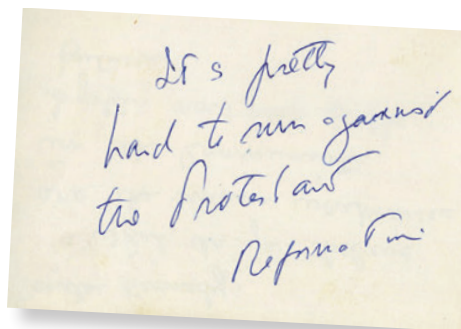 It s pretty
hard to run against
the Protestant
Reformation